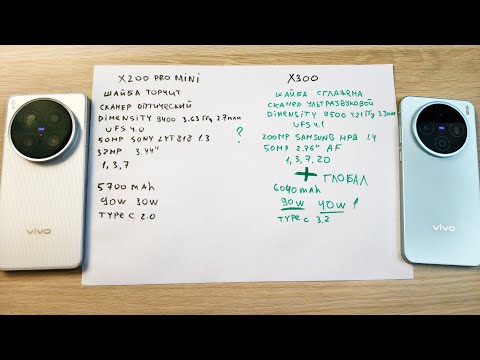 X200 PRO MINI
ШАЙБА ТОРЧИТ
СКАНЕР ОПТИЧЕСКИЙ
DIMENSITY 9400 3.63 ГГц 2.7млн
UFS 4.0
50MP SONY LYT818 1.3
32MP 3.44"
1, 3, 7
5700 mAh
90W 30W
TYPE C 2.0
?
X300
ШАЙБА СГЛАЖЕНА
СКАНЕР УЛЬТРАЗВУКОВОЙ
DIMENSITY 9500 4.21 ГГц 3.3млн
UFS 4.1
200MP SAMSUNG HPB 1.4
50MP 2.76" AF
1, 3, 7, 20
+ ГЛОБАЛ
6040 mAh
90W 40W
TYPE C 3.2
vivo
vivo